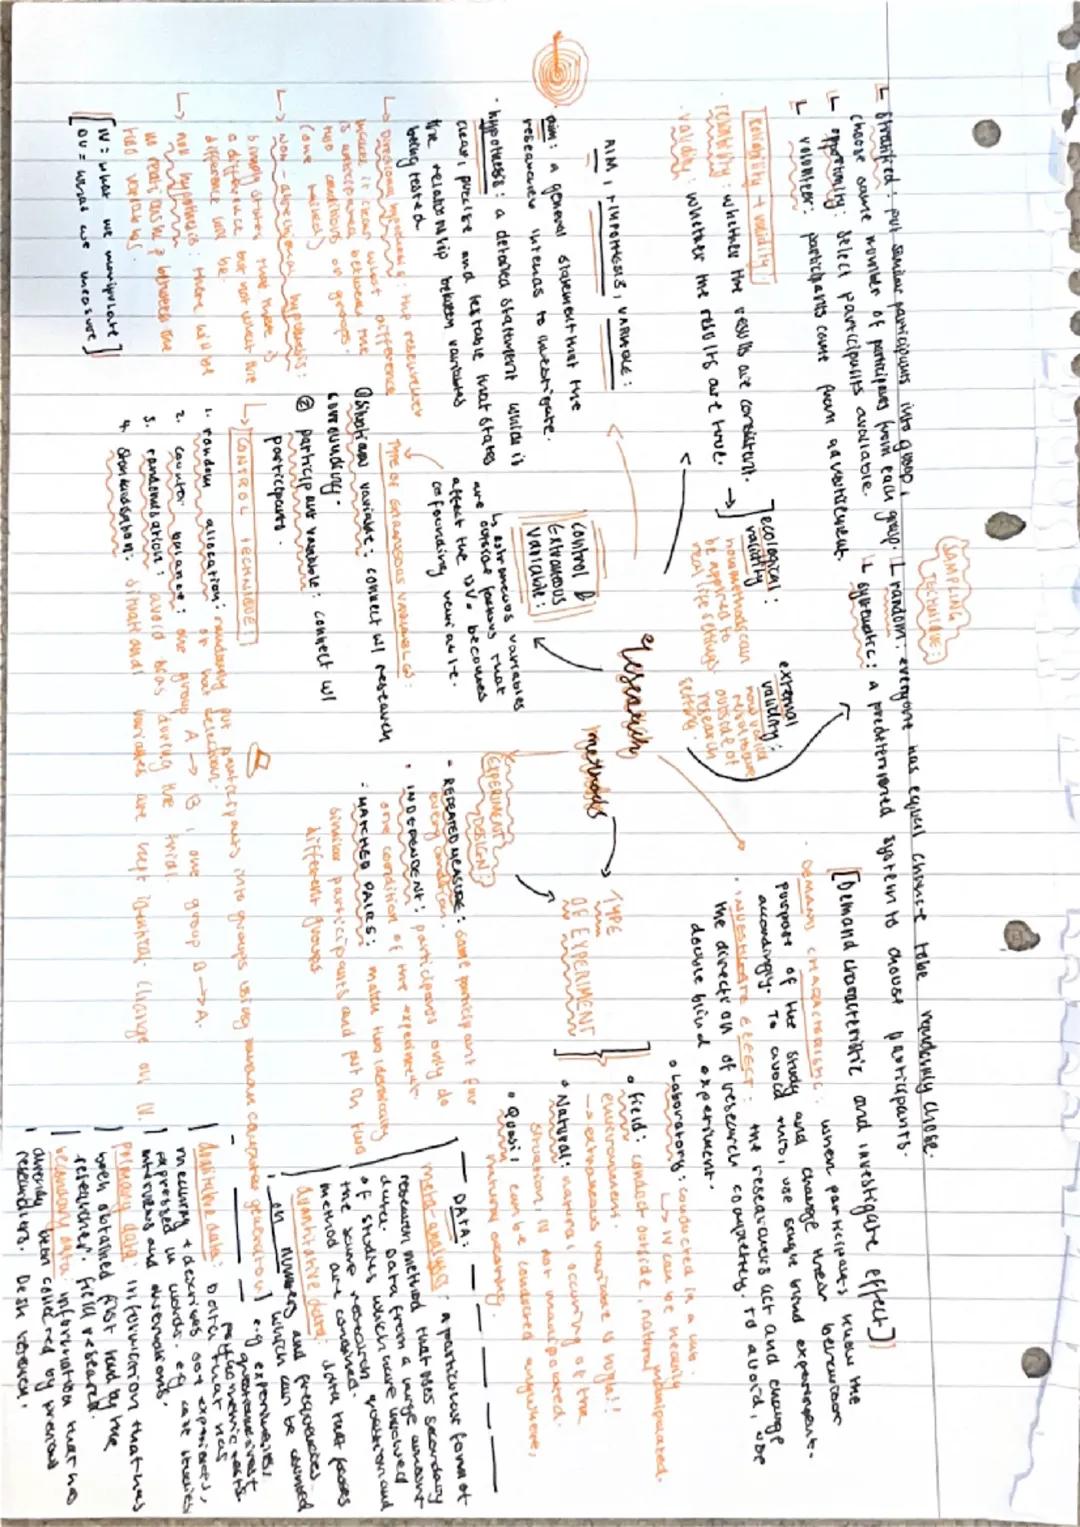 SAMPLING
TECHNIQUE:
Stratified: put similar participants into group,
chose same number of participants from each group.
opportunity: select participants available.
volunteer: participants come from advertisement.
random: everyone has equal chance to be randomly chose.
systematic: a predetermined system to choose participants.
reliability + validity
reliability: whether the results are consistent.
validity: whether the results are true.
ecological
validity:
how methods can
be applied to
real life settings
external
validity:
outside of
research
setting
[Demand characteristic and investigate effect]
DEMAND CHARACTERISTIC: when participants know the
purpose of the study and change their behaviour
accordingly. To avoid this, use single blind experiment.
INVESTIGATE EFFECT: the researchers act and change
the direction of research completely. To avoid, use
double blind experiment.
AIM, HYPOTHESIS, VARIABLE:
aim: a general statement that the
researcher intends to investigate.
hypothesis: a detailed statement which is
clear, precise and testable that states
the relationship between variables
being tested.
Directional hypothesis: the researcher
makes it clear what difference
is anticipated between the
two conditions or groups.
(one tailed)
non-directional hypothesis:
simply states that there is
a difference but not what the
difference will be.
null hypothesis: there will be
no relationship between the
two variables.
[IV = what we manipulate
DV = what we measure]
Control &
Extraneous
variable:
extraneous variables
are outside factors that
affect the DV. becomes
cofounding variable.
TYPE OF EXTRANEOUS VARIABLES:
① Situation variable: connect w/ research
surrounding.
② participant variable: connect w/
participants.
CONTROL TECHNIQUE:
1. random allocation: randomly put participants into groups using
or hat selection.
2. counter balance: one group A → B, one group B → A.
3. randomisation: avoid bias during the trial.
4. Standardisation: situational variables are kept identical. Change on IV.
Research
methods
TYPE
OF EXPERIMENT
Laboratory: conducted in a lab.
IV can be heavily
manipulated.
field: conduct outside, natural
environment.
→ extraneous variable is high!!
Natural: natural occuring of the
situation, IV not manipulated.
Quasi: can be conducted anywhere,
natural occuring.
EXPERIMENT
DESIGN:
REPEATED MEASURE: same participant for
every condition.
INDEPENDENT: participants only do
one condition of the experiment.
MATCHED PAIRS: match two identically
similar participants and put in two
different groups
DATA:
meta analysis: a particular form of
research method that uses secondary
data. Data from a large amount
of studies which have involved
the same research question and
method are combined.
Quantitative data: data that focus
on numbers and frequencies
which can be counted
e.g experiments,
questionnaires,
psychometric tests.
Qualitative data: Data that has
meaning + describes
expressed in words. eg case studies
interviews and observations.
primary data: information that has
been obtained first hand by the
researcher. field research.
secondary data: information that has
already been collected by previous
researchers. Desk research.